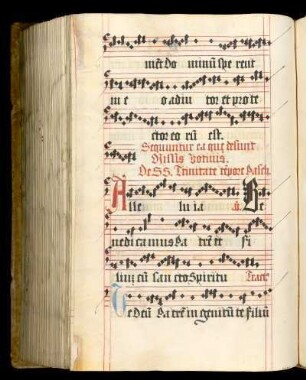 ment Do minū spe rent
in e o adiu tor et prote
ctor eo rū est.
Sequuntur ea que desunt
Missis Votiuis.
De S S. Trinitate tēpore Pasch.
Alle lu ia ℣. Be
nedicamus Pa trē et fi
liū cū san cto Spiritu Tract
Te Deū Pa trē in genitū te filiū